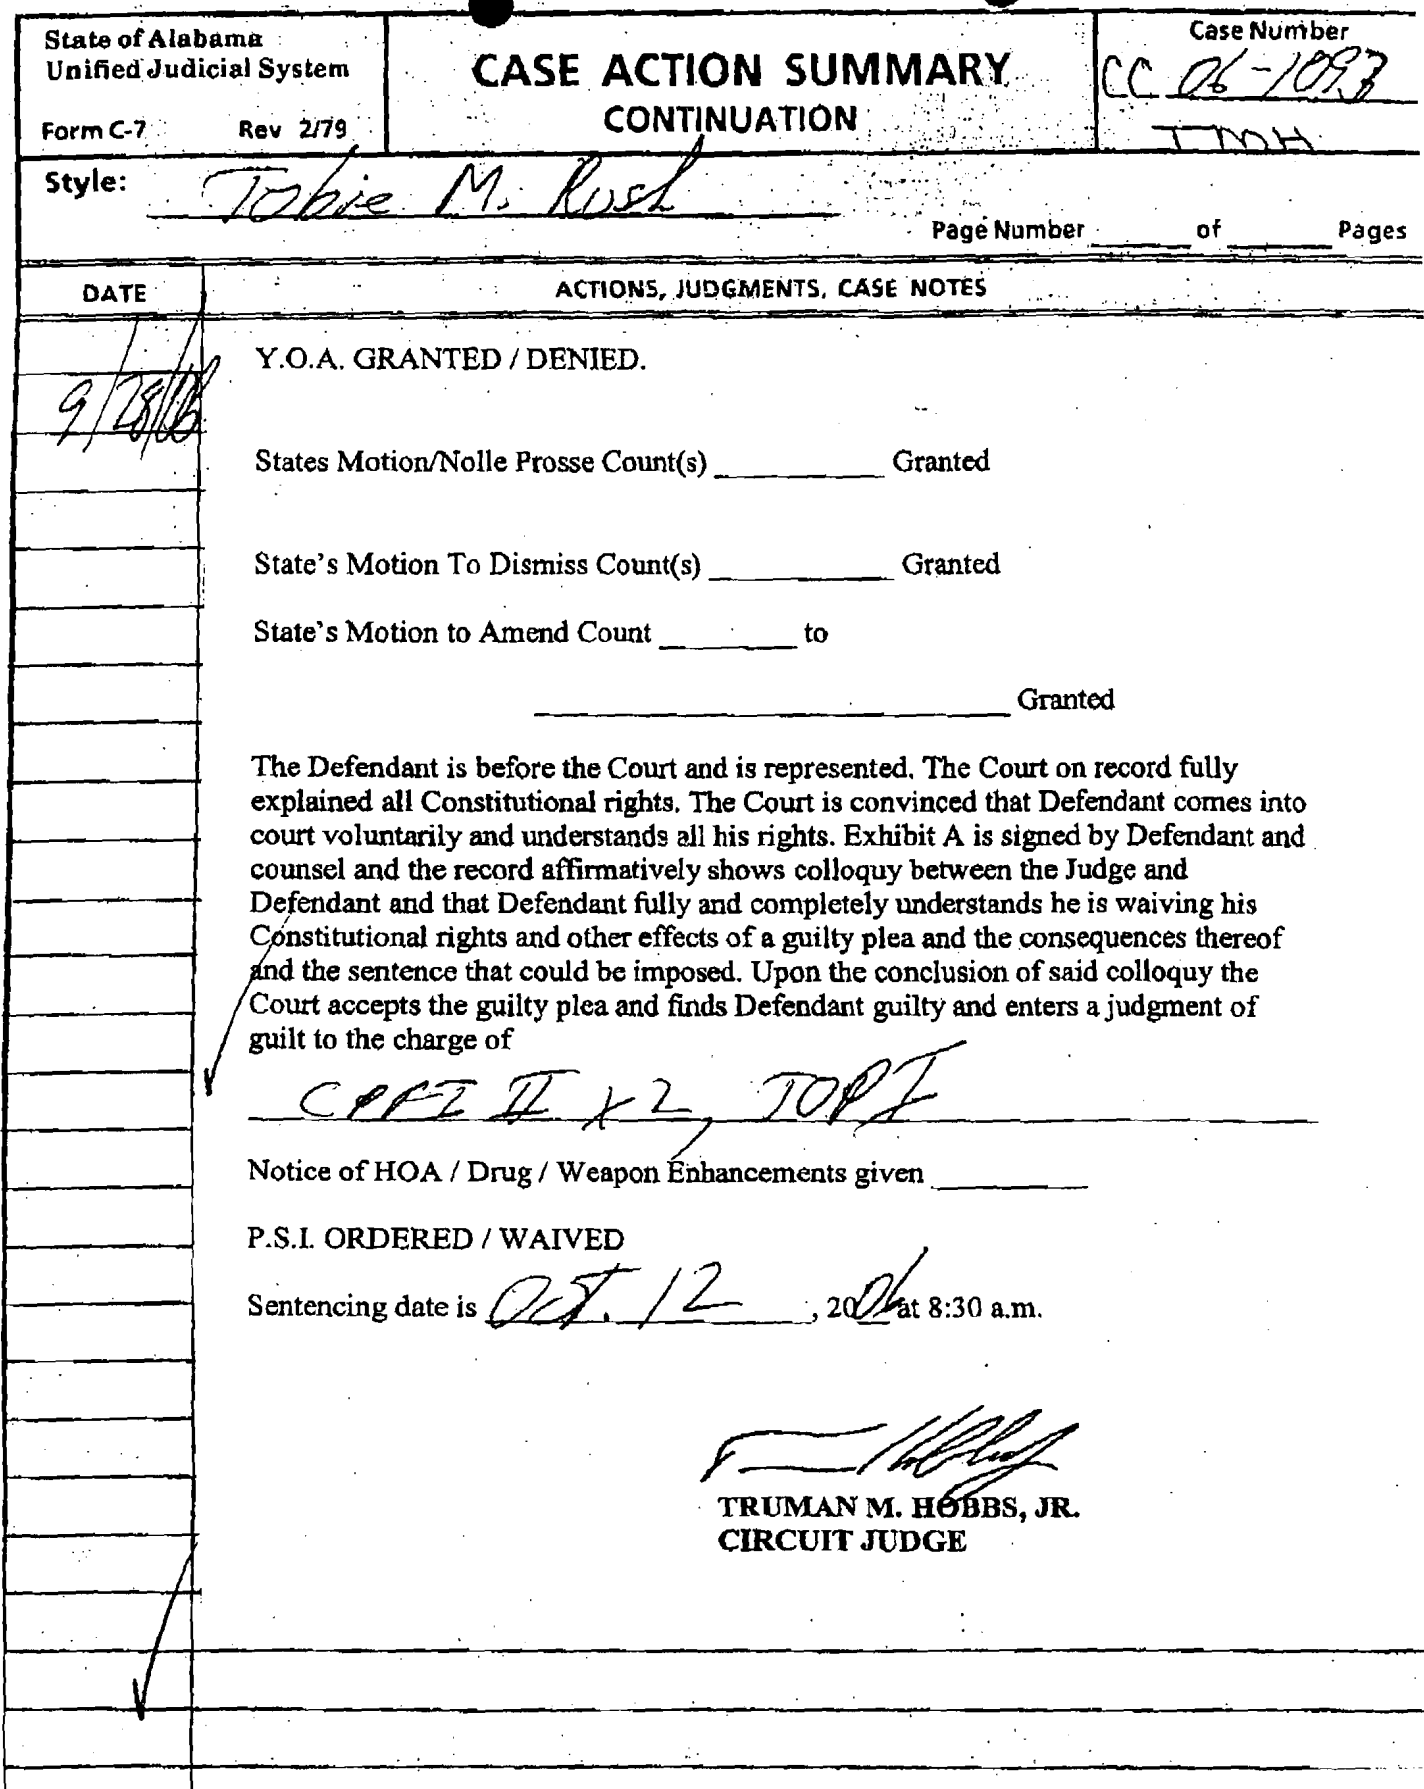 State of Alabama
Unified Judicial System
Form C-7 Rev 2/79
CASE ACTION SUMMARY
CONTINUATION
Case Number
CC 06-1093
TMH
Style: Tobie M. Rush
Page Number ______ of ______ Pages
DATE ACTIONS, JUDGMENTS, CASE NOTES
Y.O.A. GRANTED / DENIED.
9/28/06
States Motion/Nolle Prosse Count(s) __________ Granted
State's Motion To Dismiss Count(s) __________ Granted
State's Motion to Amend Count ________ to
____________________________ Granted
The Defendant is before the Court and is represented. The Court on record fully
explained all Constitutional rights. The Court is convinced that Defendant comes into
court voluntarily and understands all his rights. Exhibit A is signed by Defendant and
counsel and the record affirmatively shows colloquy between the Judge and
Defendant and that Defendant fully and completely understands he is waiving his
Constitutional rights and other effects of a guilty plea and the consequences thereof
and the sentence that could be imposed. Upon the conclusion of said colloquy the
Court accepts the guilty plea and finds Defendant guilty and enters a judgment of
guilt to the charge of
CPFI II x 2, TOPI
Notice of HOA / Drug / Weapon Enhancements given _________
P.S.I. ORDERED / WAIVED
Sentencing date is Oct. 12, 2006 at 8:30 a.m.
TRUMAN M. HOBBS, JR.
CIRCUIT JUDGE